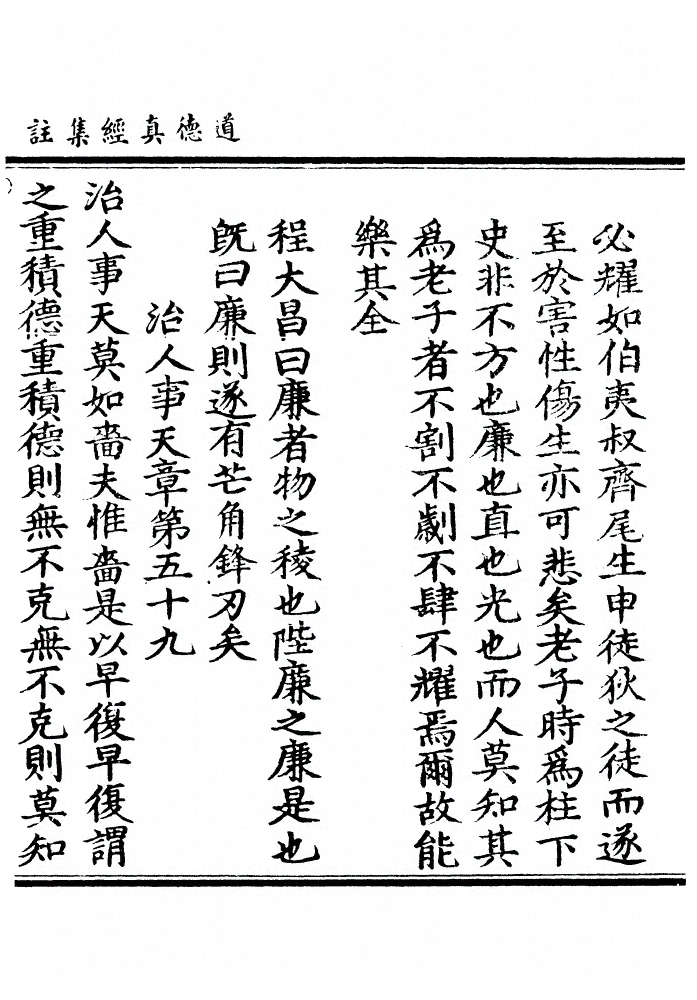 道德真經集註
必耀如伯夷叔齊尾生申徒狄之徒而遂
至於害性傷生亦可悲矣老子時爲柱下
史非不方也廉也直也光也而人莫知其
爲老子者不割不劌不肆不耀焉爾故能
樂其全
程大昌曰廉者物之稜也陛廉之廉是也
旣曰廉則遂有芒角鋒刃矣
治人事天章第五十九
治人事天莫如嗇夫惟嗇是以早復早復謂
之重積德重積德則無不克無不克則莫知